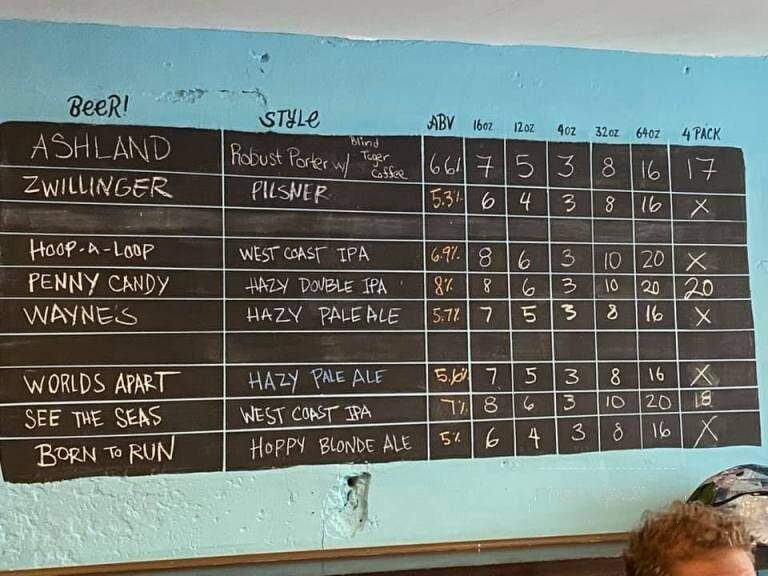 BeeR! STYLe ABV 16oz 12oz 4oz 32oz 64oz 4 PACK
ASHLAND Robust Porter w/ Blind Tiger Coffee 6.6% 7 5 3 8 16 17
ZWILLINGER PILSNER 5.3% 6 4 3 8 16 X
HOOP-A-LOOP WEST COAST IPA 6.9% 8 6 3 10 20 X
PENNY CANDY HAZY DOUBLE IPA 8% 8 6 3 10 20 20
WAYNE'S HAZY PALE ALE 5.7% 7 5 3 8 16 X
WORLDS APART HAZY PALE ALE 5.6% 7 5 3 8 16 X
SEE THE SEAS WEST COAST IPA 7% 8 6 3 10 20 18
BORN TO RUN HOPPY BLONDE ALE 5% 6 4 3 8 16 X